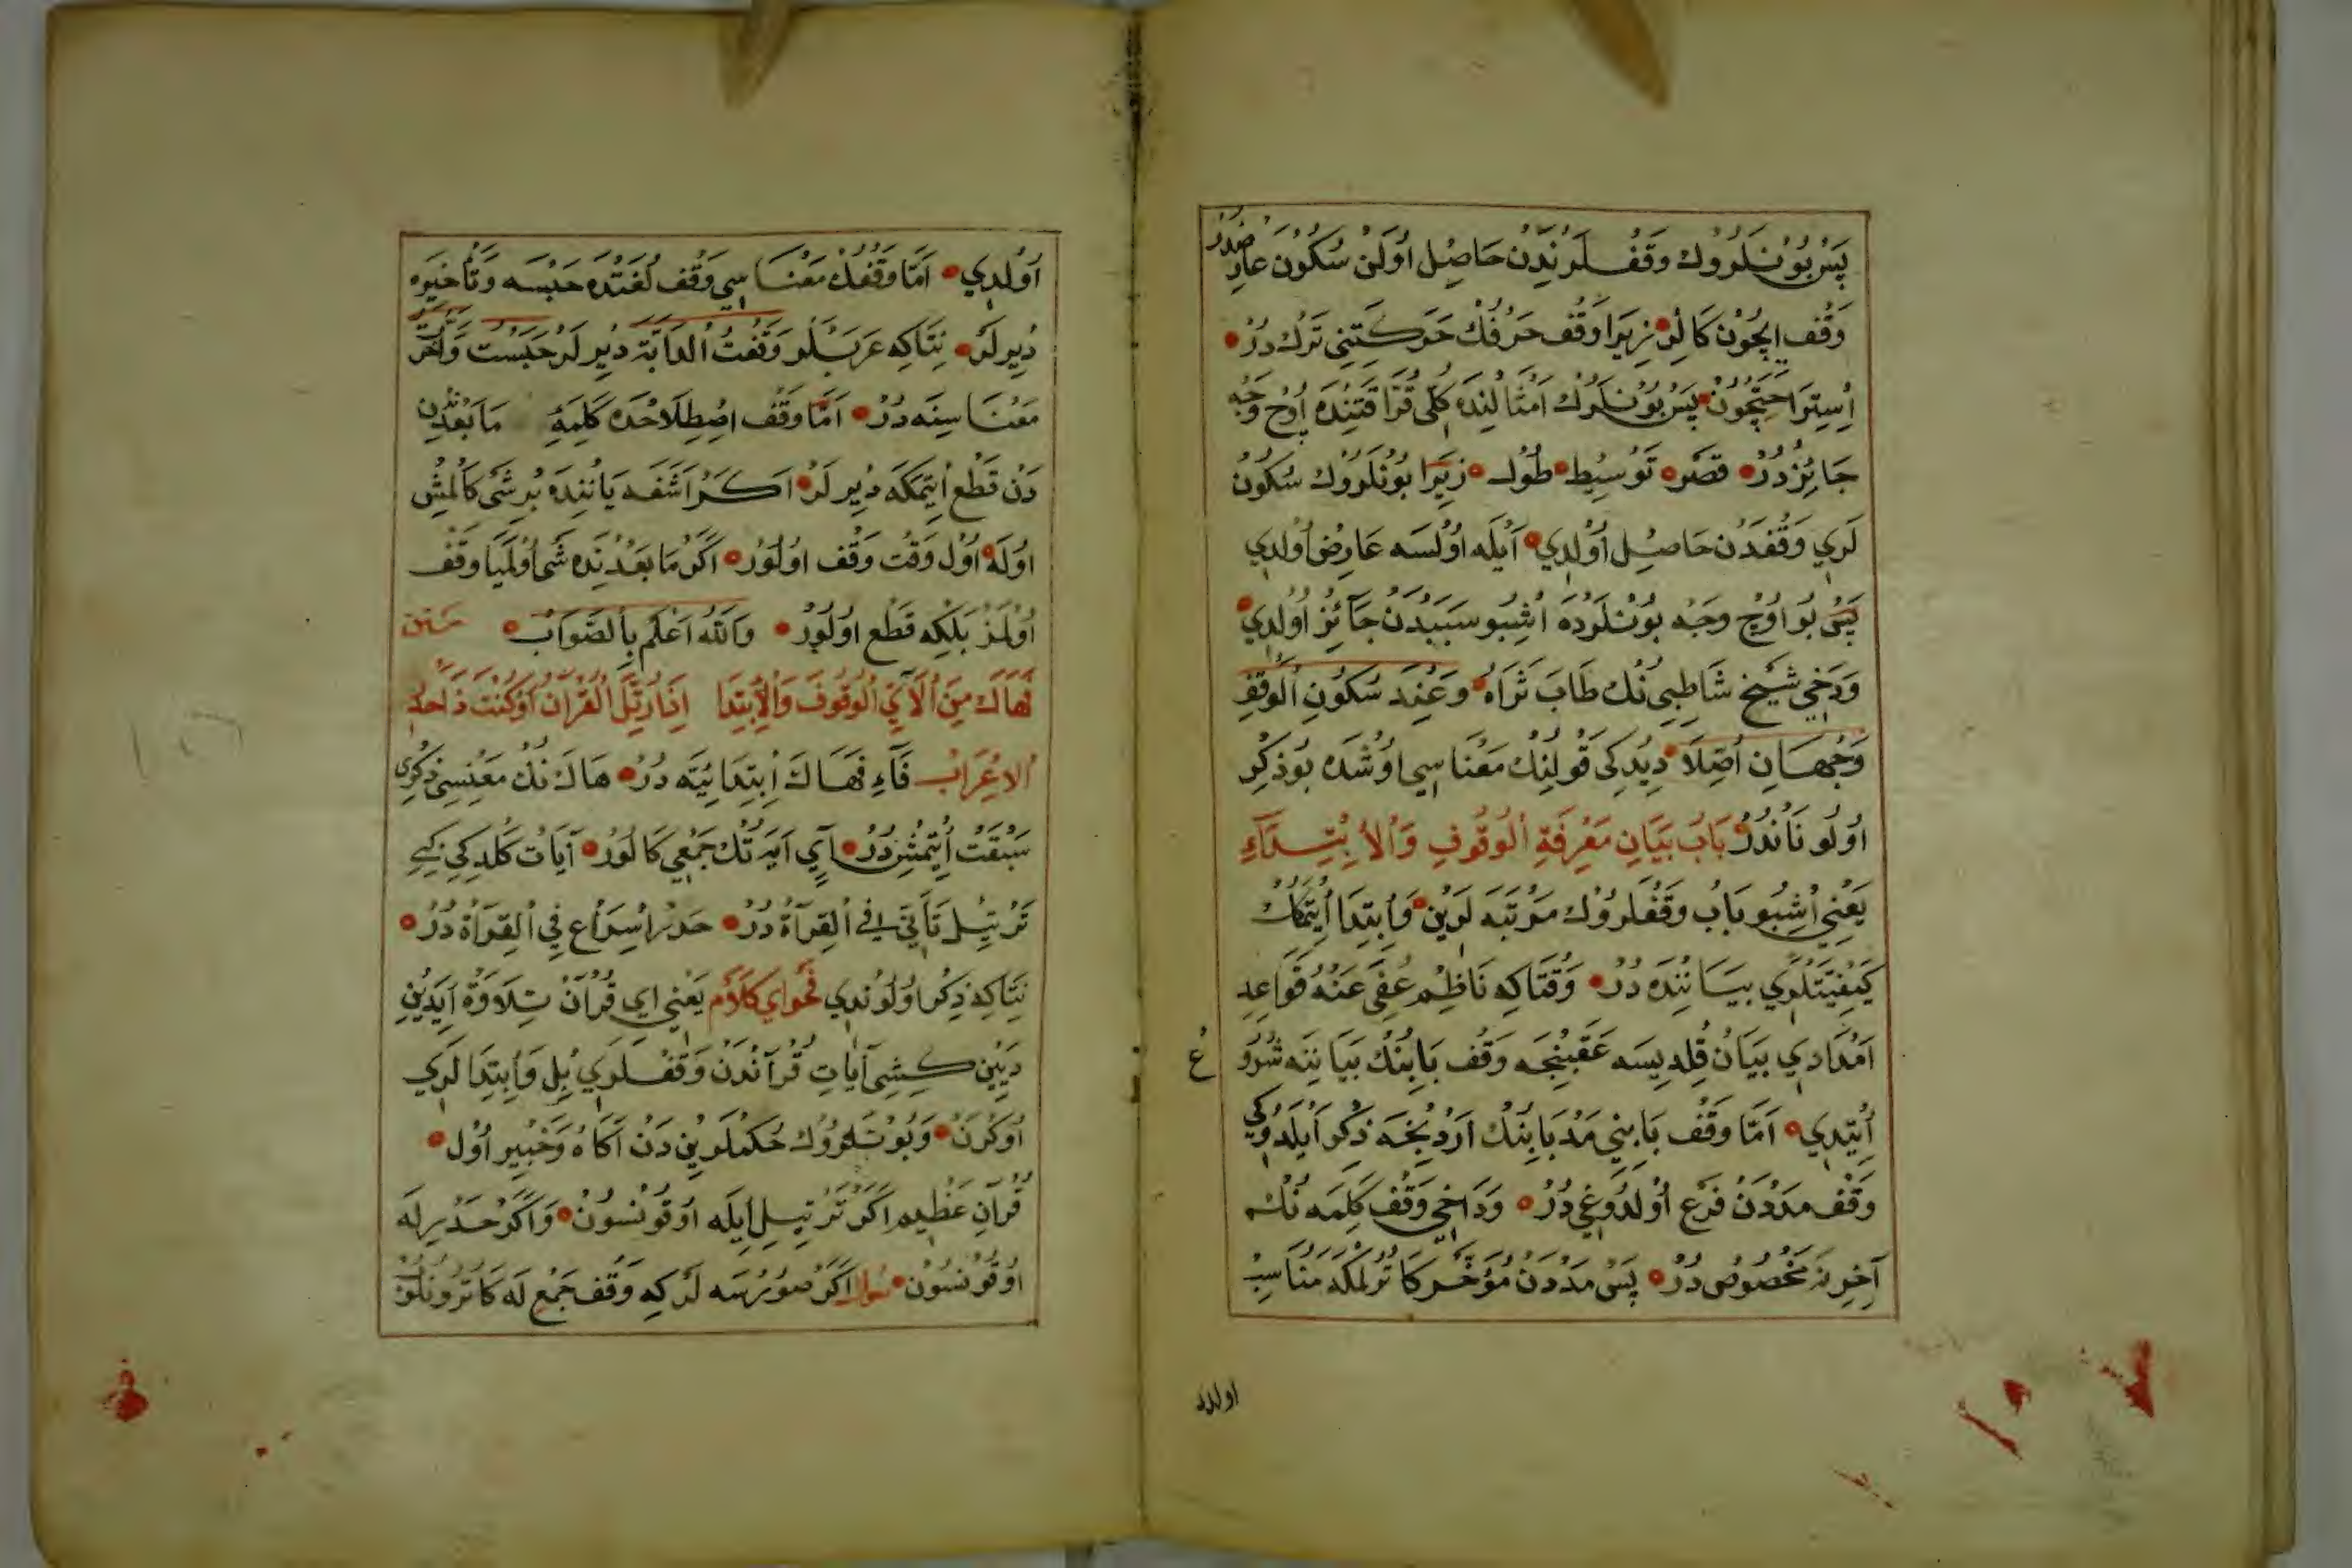 پَسْ بُو نْلَرُوكْ وَقْفْلَرِنْدَنْ حَاصِلْ اُولَنْ سُكُونْ عَارِضدر
وَقْف اِيچُونْ كَالُرْ زِيرَا وَقْف حَرْفُكْ حَرَكَتِنِى تَرْكْ دُرْ
اِسْتِرَاحَتِچُونْ پَسْ بُونْلَرُكْ اَمْثَالِنْدَه كُلِّى قُرَّا قَتِنْدَه اُوچْ وَجْه
جَائِزْدُرْ قَصْر تَوْسِيط طُول زِيرَا بُونْلَرُوكْ سُكُونْ
لَرِي وَقْفدَنْ حَاصِلْ اُولْدِي اَيْلَه اُولْسَه عَارِضْ اُولْدِي
پَسْ بُو اُوچْ وَجْه بُونْلَرْدَه اُشْبُو سَبَبْدَنْ جَآئِزْ اُولْدِي
وَدَخِي شَيْخ شَاطِبِي نُكْ طَابَ ثَرَاهُ وَعِنْدَ سُكُونِ الْوَقْفِ
وَجْهَانِ اُصِّلَا دِيدِكِى قَوْلِنُكْ مَعْنَاسِي اُوشَدَه بُو ذِكِرْ
اُولُونَانْدُرْ بَابُ بَيَانِ مَعْرِفَةِ الْوُقُوفِ وَالْاِبْتِدَآءِ
يَعْنِي اُشْبُو بَابْ وَقْفْلَرُوكْ مَرْتَبَه لَرِينْ وَاِبْتِدَا اِيتْمَكُكْ
كَيْفِيَّتْلَرِي بَيَانِنْدَه دُرْ وَقْتَاكِه نَاظِمْ عُفِيَ عَنْهُ قَوَاعِدِ
اَمْدَادِي بَيَانْ قِلْدِيسَه عَقِبِنْجَه وَقْف بَابِنُكْ بَيَانِنَه شُرُو
ع
اِيتْدِي اَمَّا وَقْف بَابِنِي مَدْ بَابِنُكْ اَرْدِنْجَه ذِكْر اَيْلَدُوكِي
وَقْف مَدْدَنْ فَرْع اُولْدُوغِي دُرْ وَدَاخِي وَقْف كَلِمَه نُكْ
آخِرِنَه مَخْصُوصْ دُرْ پَسْ مَدْدَنْ مُؤَخَّر كَاتُرْلَمَكَه مُنَاسِبْ
اولد
اُولْدِي اَمَّا وَقْفُكْ مَعْنَاسِي وَقْف لُغَتْدَه حَبْسَه وَتَأْخِيرَه
دِيرلَرْ نِتَاكِه عَرَبْلَر وَقَفْتُ الدَّابَّةَ دِيرلَرْ حَبَسْتُ وَاَخَّرْتُ
مَعْنَاسِنَه دُرْ اَمَّا وَقْف اِصْطِلَاحْدَه كَلِمَه مَا بَعْدِنْ
دَنْ قَطْع اِيتْمَكَه دِيرلَرْ اَكَرْ اَشَغَه يَانِنْدَه بِرْ شَىْ كَالْمِشْ
اُولَه اُول وَقْت وَقْف اُولُورْ اَكَرْ مَا بَعْدِنْدَه شَىْ اُولْمَيَا وَقْف
اُولْمَزْ بَلْكِه قَطْع اُولُورْ وَاللهُ اَعْلَمُ بِالصَّوَابْ متن
فَهَاكَ مِنَ الْآيِ الْوُقُوفَ وَالْاِبْتِدَا اِذَا رُتِّلَ الْقُرْآنُ اَوْ كُنْتَ ذَا حَدْرِ
الاِعْرَابْ فَآءِ فَهَاكَ اِبْتِدَائِيَّه دُرْ هَاكَ نُكْ مَعْنِسِى ذِكْرِى
سَبْقَتْ اِيتْمِشْدُرْ آيِ آيَه نُكْ جَمْعِي كَالُورْ آيَاتْ كَلْدِكِي كِبِى
تَرْتِيل تَأَنِّي فِي الْقِرَآة دُرْ حَدْر اِسْرَاع فِي الْقِرَآة دُرْ
نِتَاكِه ذِكْر اُولُونْدِي فَحْوَاي كَلَامْ يَعْنِي اِي قُرْآنْ تِلَاوَة اَيدِينْ
دَيِينْ كِشِى آيَاتِ قُرْآنْدَنْ وَقْفْلَرِي بِلْ وَاِبْتِدَا لَرِي
اُوكْرَنْ وَبُونْلَرُوكْ حُكْملَرِينْدَنْ آكَاهْ وَخَبِير اُولْ
قُرْآنِ عَظِيم اَكَرْ تَرْتِيل اِيلَه اُوقُونْسُونْ وَاَكَرْ حَدْر ايلَه
اُوقُونْسُونْ سُؤال اَكَرْ صُورُرْسَه لَرْكِه وَقْف جَمْع لَه كَاتُرُونْلُوب